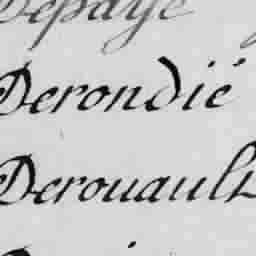 Depaye
Derondié
Derouault